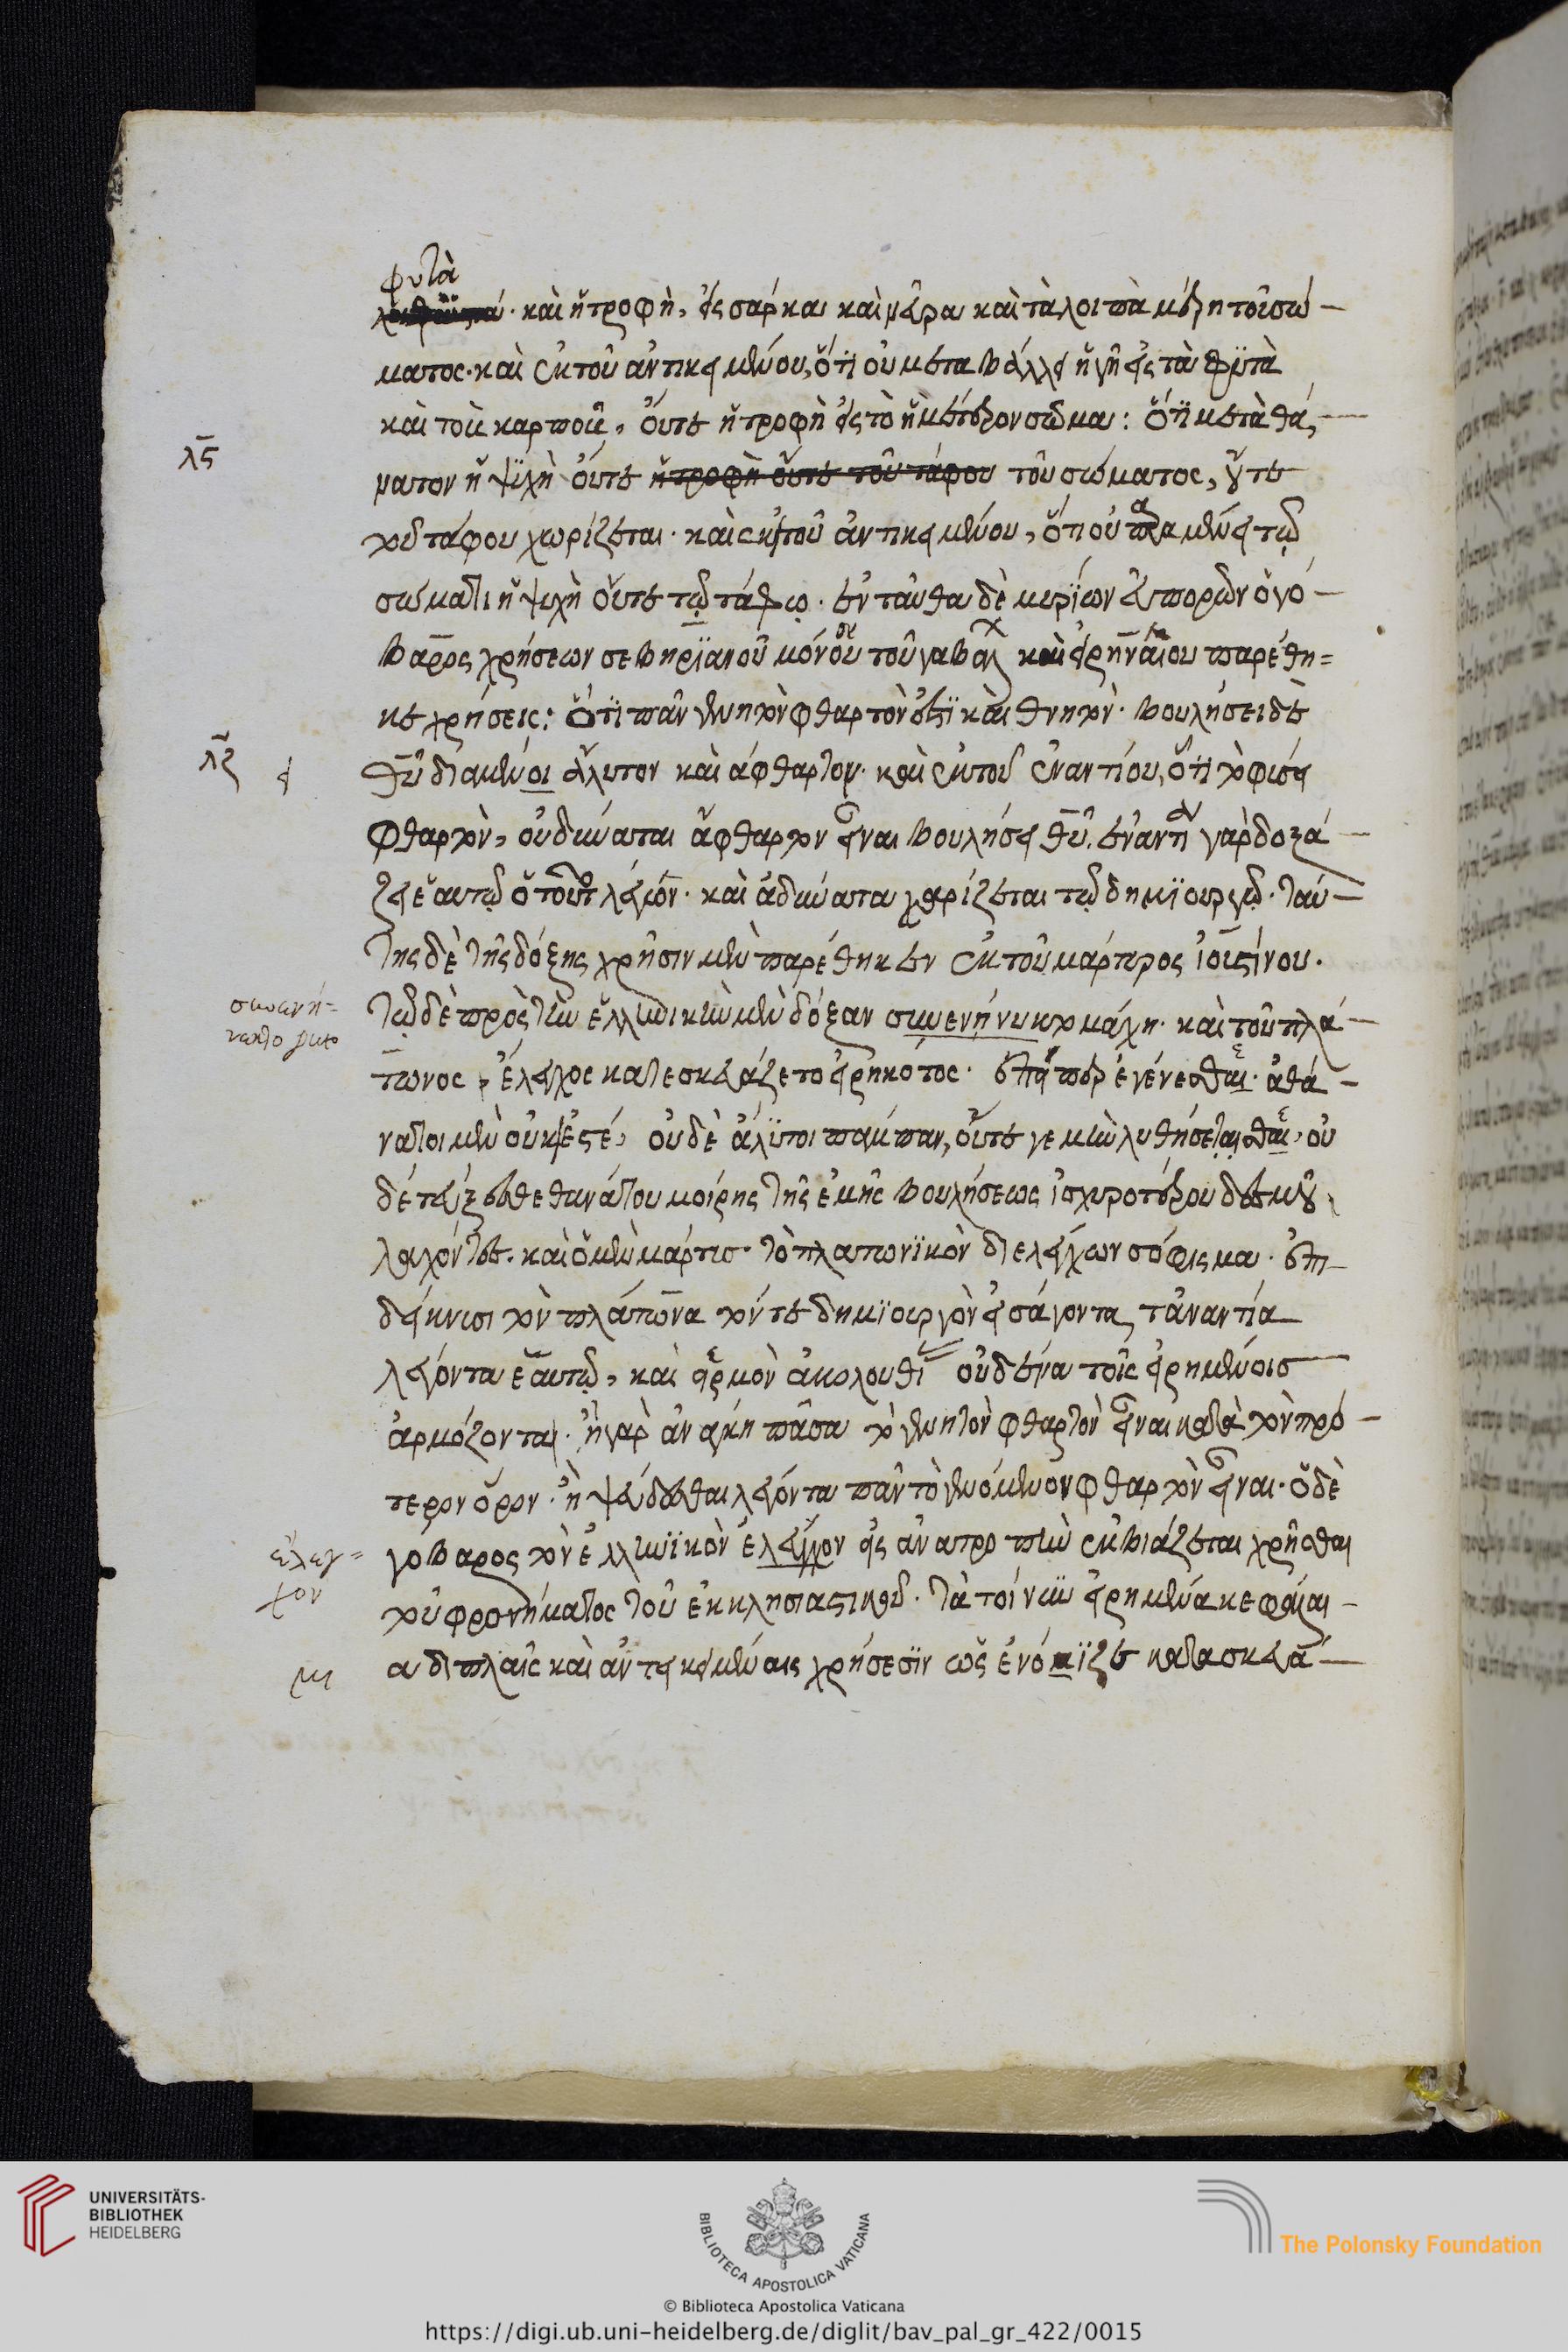 φυτὰ
καὶ ἡ τροφὴ, εἰς σάρκα καὶ νεῦρα καὶ τὰ λοιπὰ μέρη τοῦ σώ-
ματος. καὶ ἐκ τοῦ ἀντικειμένου, ὅτι οὐ μεταβάλλει ἡ γῆ εἰς τὰ φυτὰ
καὶ τοὺς καρποὺς, οὔτε ἡ τροφὴ εἰς τὸ ἡμέτερον σῶμα: ὅτι μετὰ θά-
λϛ
νατον ἡ ψυχὴ οὔτε ἡ τροφὴ οὔτε τοῦ τάφου τοῦ σώματος, οὔτε
τοῦ τάφου χωρίζεται. καὶ ἐκ τοῦ ἀντικειμένου, ὅτι οὐ παραμένει τῷ
σώματι ἡ ψυχὴ οὔτε τῷ τάφῳ. ἐνταῦθα δὲ μυρίων εὐπορῶν ὁ γό-
βαρος χρήσεων σεβηριανοῦ μόνου τοῦ γαβάλ καὶ εἰρηναίου παρέθη-
κε χρήσεις: ὅτι πᾶν γενητὸν φθαρτὸν ἐστὶ καὶ θνητὸν. βουλήσει δὲ
λζ
ει
θῦ διαμένοι ἄλυτον καὶ ἄφθαρτον. καὶ ἐκ τοῦ ἐναντίου, ὅτι τὸ φύσει
φθαρτὸν, οὐ δύναται ἄφθαρτον εἶναι βουλήσει θῦ. ἐναντία γὰρ δοξά-
ζει ἑαυτῷ ὁ τοῦτο λέγων. καὶ ἀδύνατα χαρίζεται τῷ δημιουργῷ. ταύ-
της δὲ τῆς δόξης χρῆσιν μὲν παρέθηκεν ἐκ τοῦ μάρτυρος ἰουστίνου.
τῷ δὲ πρὸς τὴν ἑλληνικὴν μὲν δόξαν συνενήνεκτο μάχη. καὶ τοῦ πλά-
τωνος ἔλεγχος κατεσκευάζετο εἰρηκότος. ἐπείπερ ἐγένεσθαι. ἀθά-
νατοι μὲν οὐκ ἐστέ, οὐδὲ ἄλυτοι πάμπαν, οὔτε γε μὴν λυθήσεσθαι, οὐ
δὲ τεύξεσθε θανάτου μοίρης τῆς ἐμῆς βουλήσεως ἰσχυροτέρου δεσμοῦ
λαχόντες. καὶ ὁ μὲν μάρτυς τὸ πλατωνικὸν διελέγχων σόφισμα. ἐπι-
δείκνυσι τὸν πλάτωνα τόν τε δημιουργὸν εἰσάγοντα τἀναντία
λέγοντα ἑαυτῷ, καὶ εἱρμὸν ἀκολουθί οὐδένα τοῖς εἰρημένοις
ἁρμόζονται. ἢ γὰρ ἀνάγκη πᾶσα τὸ γενητὸν φθαρτὸν εἶναι κατὰ τὸν πρό-
τερον ὅρον. ἢ ψεύδεσθαι λέγοντα πᾶν τὸ γενόμενον φθαρτὸν εἶναι. ὁ δὲ
ἔλεγ=
χον
γόβαρος τὸν ἑλληνικὸν ἔλεγχον εἰς ἀνατροπὴν ἐκβιάζεται χρῆσθαι
τοῦ φρονήματος τοῦ ἐκκλησιαστικοῦ. τὰ τοίνυν εἰρημένα κεφάλαι-
α διπλαῖς καὶ ἀντικειμέναις χρήσεσιν ὡς ἐνόμιζε κατασκευά-
UNIVERSITÄTS-
BIBLIOTHEK
HEIDELBERG
BIBLIOTECA APOSTOLICA VATICANA
The Polonsky Foundation
© Biblioteca Apostolica Vaticana
https://digi.ub.uni-heidelberg.de/diglit/bav_pal_gr_422/0015